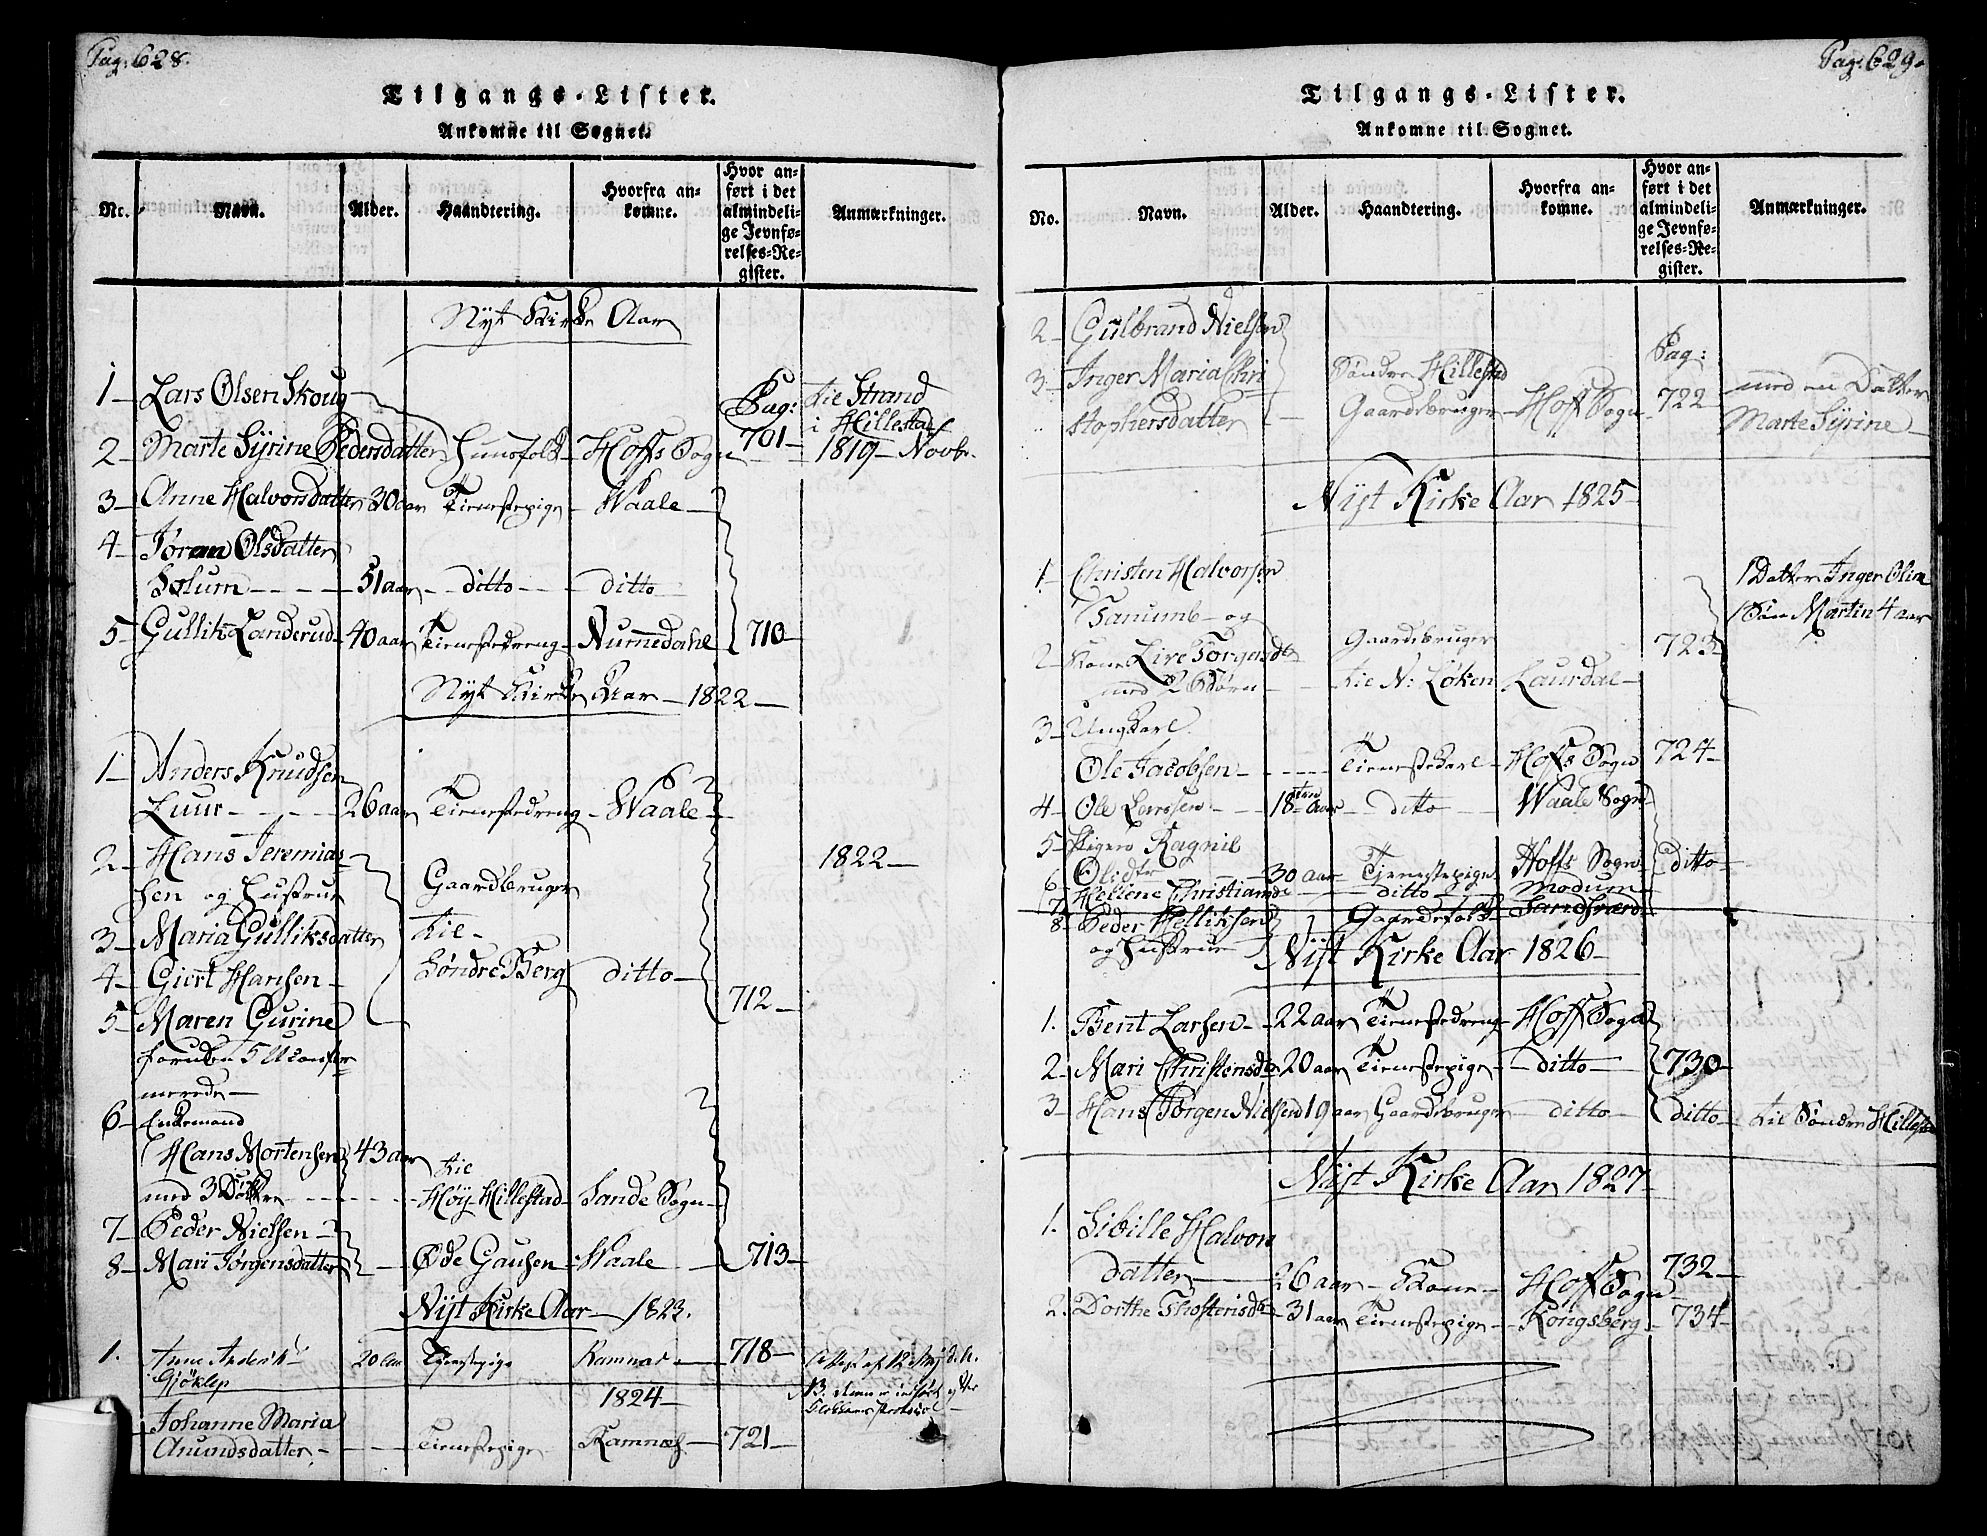 Pag: 628.
Tilgangs-Lister.
Ankomne til Sognet.
No.
Navn.
Alder.
Haandtering.
Hvorfra ankomne.
Hvor anført i det almindelige Jevnførelses-Register.
Anmærkninger.
Nyt Kirke Aar
1 Lars Olsen Skoug Pag: til Strand
i Hillestad
2 Marte Syrine Pedersdatter Huusfolk Hoffs Sogn 701 1819 Novbr.
3 Anne Halvorsdatter 30 aar Tienestepige Waale
4 Joran Olsdatter
Solum 51 aar ditto ditto
5 Gullik Landerud 40 aar Tienestedreng Nummedahl 710
Nyt Kirke Aar 1822
1 Anders Knudsen
Luur 26 aar Tienestedreng Waale
2 Hans Jeremias- 1822
sen og Hustrue Gaardbruger
3 Maria Gulliksdatter til
4 Giert Hansen Søndre Berg ditto 712
5 Maren Gurine
foruden 5 Uconfir-
merede
6 Enkemand
Hans Mortensen 43 aar til
med 3 Døttre Høy Hillestad Sande Sogn
7 Peder Nielsen
8 Mari Jørgensdatter Øde Gausen Waale 713
Nyt Kirke Aar 1823.
1. Anne Anders 20 Aar Tjenstepige Ramnæs 718
Gjøklep
1824
Johanne Maria
Amundsdatter Tienestepige Ramnæs 721
Pag: 629.
Tilgangs-Lister.
Ankomne til Sognet.
No.
Navn.
Alder.
Haandtering.
Hvorfra ankomne.
Hvor anført i det almindelige Jevnførelses-Register.
Anmærkninger.
2 Gulbrand Nielsen Pag:
3 Inger Maria Chri Søndre Hillestad med en Datter
stophersdatter Gaardbruger Hoff Sogn 722 Marte Syrine
Nyt Kirke Aar 1825
1 Christen Halvorsen 1 Datter Inger Olia
Tanumb og 1 Søn Martin 4 aar
2 Kone Live Torgersdr Gaardbruger 723
med 2 Børn til N: Løken Laurdal
3 Ungkarl
Ole Jacobsen Tienestekarl Hoffs Sogn 724
4 Ole Larssen 18 aar ditto Waale Sogn
5 Pigen Ragnil
Olsdtr 30 aar Tjenestepige Hoffs Sogn ditto
6 Hellene Christiansdr ditto Modum
7
8 Peder Hellik­sen Gaardefolk Sandsværd
og Hustrue
Nyt Kirke Aar 1826
1. Bent Larsen 22 aar Tienestedreng Hoff Sogn
2 Mari Christensdr 20 aar Tienestepige ditto 730
3 Hans Jørgen Nielsen 19 aar Gaardbruger ditto ditto til Søndre Hillestad
Nyt Kirke Aar 1827
1. Sibille Halvors
datter 26 aar Kone Hoff Sogn 732
2. Dorthe Thostensdr 31 aar Tienestepige Kongsberg 734